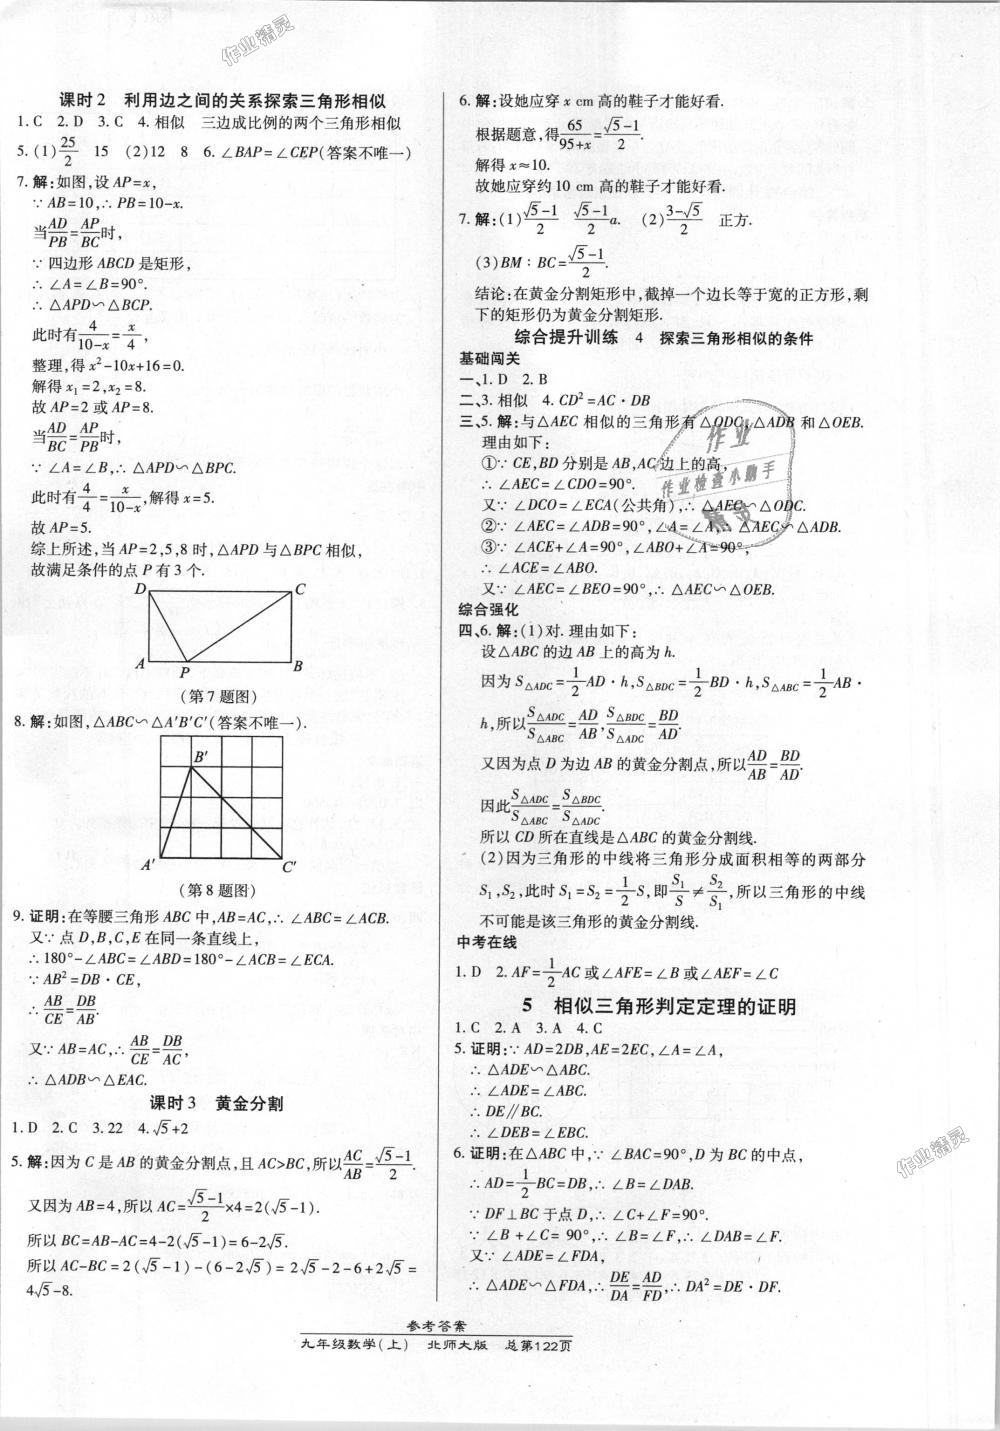 课时2 利用边之间的关系探索三角形相似
1. C 2. D 3. C 4. 相似 三边成比例的两个三角形相似
5. (1)25/2 15 (2)12 8 6. ∠BAP=∠CEP(答案不唯一)
7. 解:如图,设 AP=x,
∵ AB=10,∴ PB=10-x.
当AD/PB=AP/BC时,
∵ 四边形 ABCD 是矩形,
∴ ∠A=∠B=90°.
∴ △APD∽△BCP.
此时有4/(10-x)=x/4,
整理,得 x²-10x+16=0.
解得 x₁=2,x₂=8.
故 AP=2 或 AP=8.
当AD/BC=AP/PB时,
∵ ∠A=∠B,∴ △APD∽△BPC.
此时有4/4=x/(10-x),解得 x=5.
故 AP=5.
综上所述,当 AP=2,5,8 时,△APD 与△BPC 相似,
故满足条件的点 P 有 3 个.
D C
A P B
(第 7 题图)
8. 解:如图,△ABC∽△A′B′C′(答案不唯一).
B′
A′ C′
(第 8 题图)
9. 证明:在等腰三角形 ABC 中,AB=AC,∴ ∠ABC=∠ACB.
又∵ 点 D,B,C,E 在同一条直线上,
∴ 180°-∠ABC=∠ABD=180°-∠ACB=∠ECA.
∵ AB²=DB·CE,
∴ AB/CE=DB/AB.
又∵ AB=AC,∴ AB/CE=DB/AC,
∴ △ADB∽△EAC.
课时3 黄金分割
1. D 2. C 3. 22 4. √5+2
5. 解:因为 C 是 AB 的黄金分割点,且 AC>BC,所以AC/AB=(√5-1)/2.
又因为 AB=4,所以 AC=(√5-1)/2×4=2(√5-1).
所以 BC=AB-AC=4-2(√5-1)=6-2√5.
所以 AC-BC=2(√5-1)-(6-2√5)=2√5-2-6+2√5=
4√5-8.
6. 解:设她应穿 x cm 高的鞋子才能好看.
根据题意,得65/(95+x)=(√5-1)/2.
解得 x≈10.
故她应穿约 10 cm 高的鞋子才能好看.
7. 解:(1)(√5-1)/2 (√5-1)/2 a. (2)(3-√5)/2 正方.
(3)BM∶BC=(√5-1)/2.
结论:在黄金分割矩形中,截掉一个边长等于宽的正方形,剩
下的矩形仍为黄金分割矩形.
综合提升训练 4 探索三角形相似的条件
基础闯关
一、1. D 2. B
二、3. 相似 4. CD²=AC·DB
三、5. 解:与△AEC 相似的三角形有△ODC,△ADB 和△OEB.
理由如下:
①∵ CE,BD 分别是 AB,AC 边上的高,
∴ ∠AEC=∠CDO=90°.
又∵ ∠DCO=∠ECA(公共角),∴ △AEC∽△ODC.
②∵ ∠AEC=∠ADB=90°,∠A=∠A,∴ △AEC∽△ADB.
③∵ ∠ACE+∠A=90°,∠ABO+∠A=90°,
∴ ∠ACE=∠ABO.
又∵ ∠AEC=∠BEO=90°,∴ △AEC∽△OEB.
综合强化
四、6. 解:(1)对. 理由如下:
设△ABC 的边 AB 上的高为 h.
因为 S△ADC=1/2 AD·h,S△BDC=1/2 BD·h,S△ABC=1/2 AB·
h,所以S△ADC/S△ABC=AD/AB,S△BDC/S△ADC=BD/AD.
又因为点 D 为边 AB 的黄金分割点,所以AD/AB=BD/AD.
因此S△ADC/S△ABC=S△BDC/S△ADC.
所以 CD 所在直线是△ABC 的黄金分割线.
(2)因为三角形的中线将三角形分成面积相等的两部分
S₁,S₂,此时 S₁=S₂=1/2 S,即S₁/S≠S₂/S₁,所以三角形的中线
不可能是该三角形的黄金分割线.
中考在线
1. D 2. AF=1/2 AC 或∠AFE=∠B 或∠AEF=∠C
5 相似三角形判定定理的证明
1. C 2. A 3. A 4. C
5. 证明:∵ AD=2DB,AE=2EC,∠A=∠A,
∴ △ADE∽△ABC.
∴ ∠ADE=∠ABC.
∴ DE∥BC.
∴ ∠DEB=∠EBC.
6. 证明:在△ABC 中,∵ ∠BAC=90°,D 为 BC 的中点,
∴ AD=1/2 BC=DB,∴ ∠B=∠DAB.
∵ DF⊥BC 于点 D,∴ ∠C+∠F=90°.
∵ ∠B+∠C=90°,∴ ∠B=∠F,∴ ∠DAB=∠F.
又∵ ∠ADE=∠FDA,
∴ △ADE∽△FDA,∴ DE/DA=AD/FD,∴ DA²=DE·DF.
参考答案
九年级数学(上) 北师大版 总第122页
作业精灵
作业
作业检查小助手
作业精灵